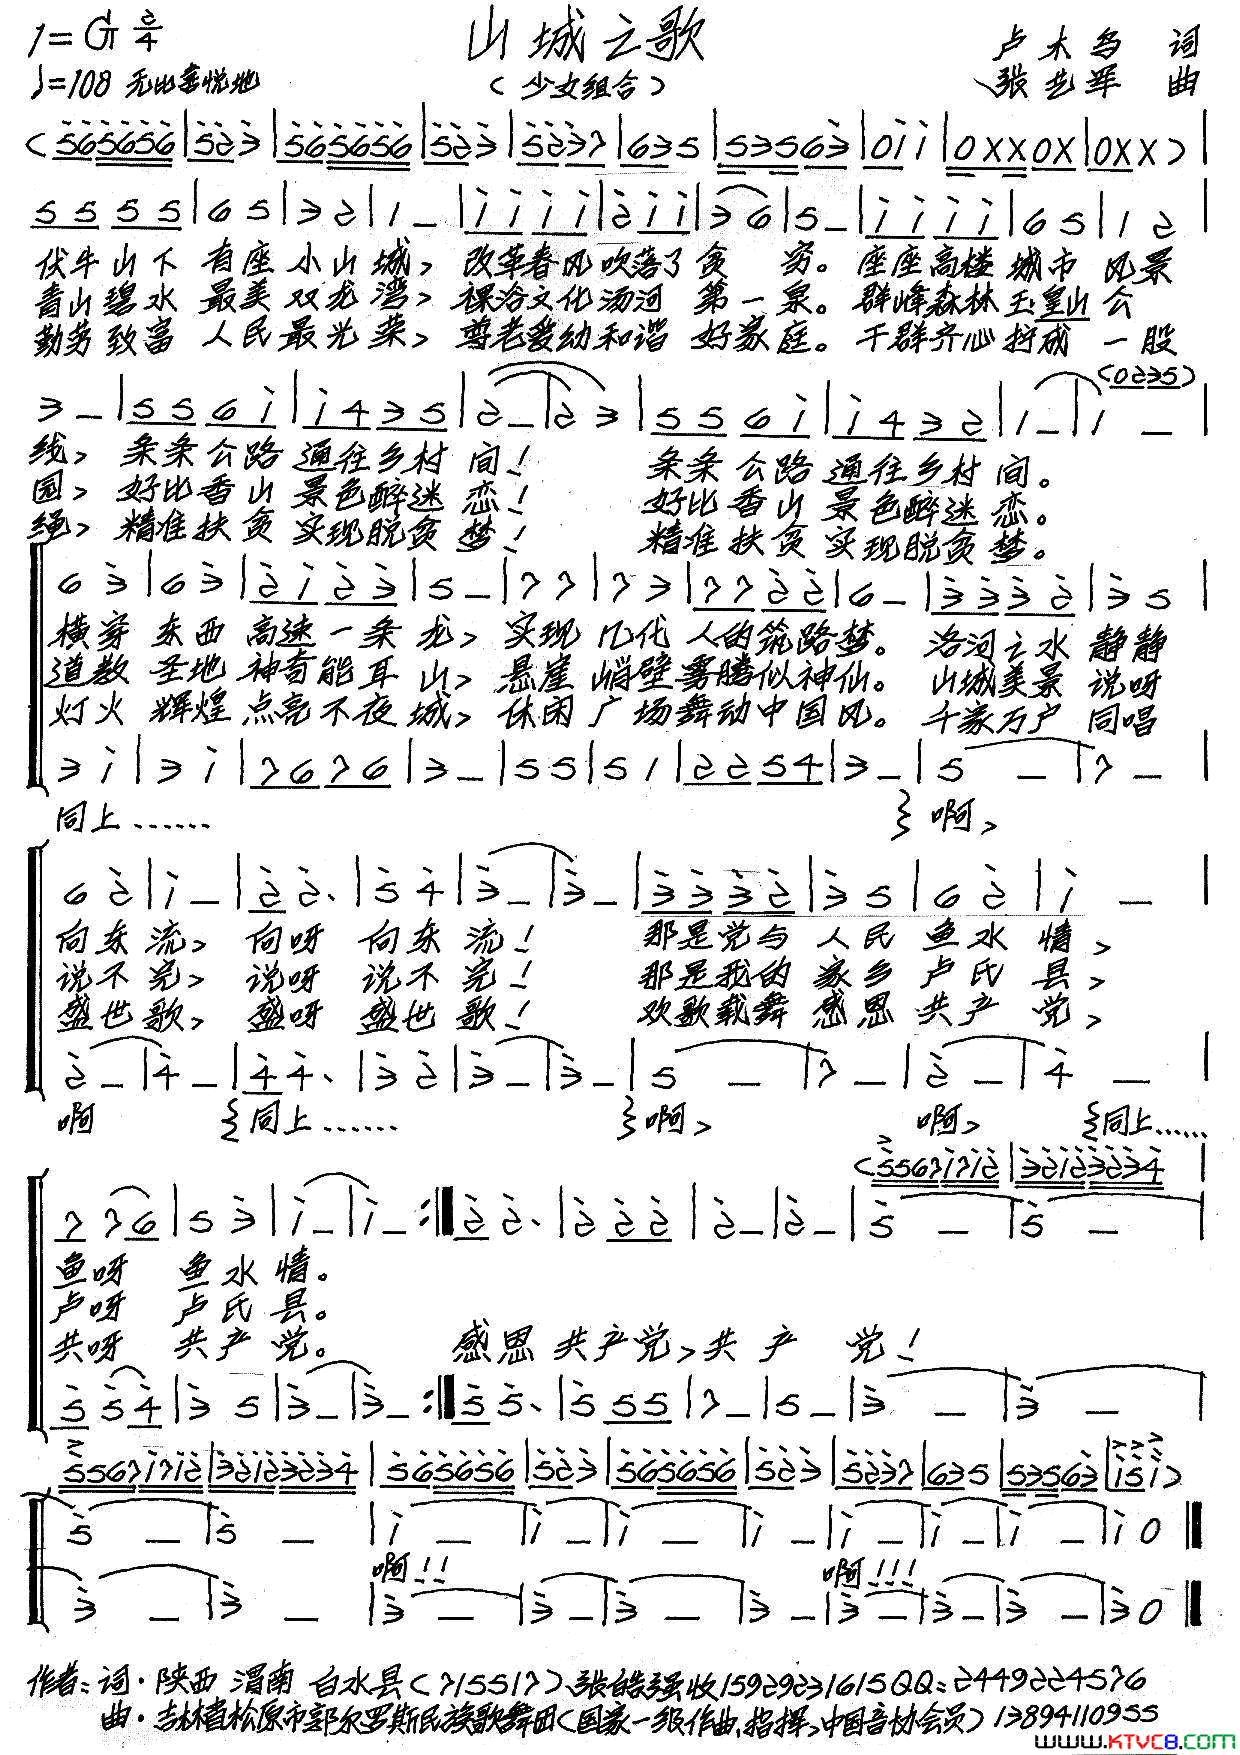 1=G 2/4
山城之歌
卢木鸟 词
♩=108 无比喜悦地
(少女组合)
张艺军 曲
(565656|523|565656|523|5237|635|53563|0ii|0XX0X|0XX)|
5555|65|32|1–|iiii|2ii|36|5–|iiii|65|12|
伏牛山下 有座小山城，改革春风吹落了贫 穷。座座高楼 城市 风景
青山碧水 最美双龙湾，裸浴文化汤河 第一泉。群峰森林玉皇山公
勤劳致富 人民最光荣，尊老爱幼和谐 好家庭。干群齐心拧成 一股
(0235)
3–|556i|i435|2–|23|556i|i432|1–|1–
线，条条公路 通往乡村 间！ 条条公路 通往乡村 间。
园，好比香山 景色醉迷 恋！ 好比香山 景色醉迷 恋。
绳，精准扶贫 实现脱贫 梦！ 精准扶贫 实现脱贫 梦。
63|63|2i23|5–|77|73|7722|6–|3332|35|
横穿 东西 高速一条 龙，实现 几代 人的筑路梦。洛河之水 静静
道教 圣地 神奇能耳 山，悬崖 峭壁雾腾似神仙。山城美景 说呀
灯火 辉煌 点亮不夜 城，休闲 广场舞动中国风。千家万户 同唱
3i|3i|7676|3–|55|51|2254|3–|5–|7–|
同上…… 啊，
62|i–|22.|54|3–|3–|3332|35|62|i–|
向东流，向呀 向东 流！ 那是党与 人民 鱼水 情，
说不完，说呀 说不 完！ 那是我的 家乡 卢氏 县，
盛世歌，盛呀 盛世 歌！ 欢歌载舞 感恩 共产 党，
2–|4–|44.|32|3–|3–|5–|7–|2–|4–|
啊 同上…… 啊， 啊， 同上……
(5567i7i2|32i23234|
776|53|i–|i–:‖22.|222|2–|2–|5–|5–|
鱼呀 鱼水情。
卢呀 卢氏县。
共呀 共产党。 感恩 共产党，共产 党！
554|35|3–|3–:‖55.|555|7–|5–|3–|3–|
5567i7i2|32i23234|565656|523|565656|523|5237|635|53563|i5i)
5–|5–|i–|i–|i–|i–|i–|i–|i–|i0‖
啊！！ 啊！！！
3–|3–|3–|3–|3–|3–|3–|3–|3–|30‖
作者：词·陕西 渭南 白水县(715517)、张皓强收15929231615QQ：2449224576
曲·吉林省松原市郭尔罗斯民族歌舞团(国家一级作曲、指挥，中国音协会员)13894110955
www.KTVC8.com